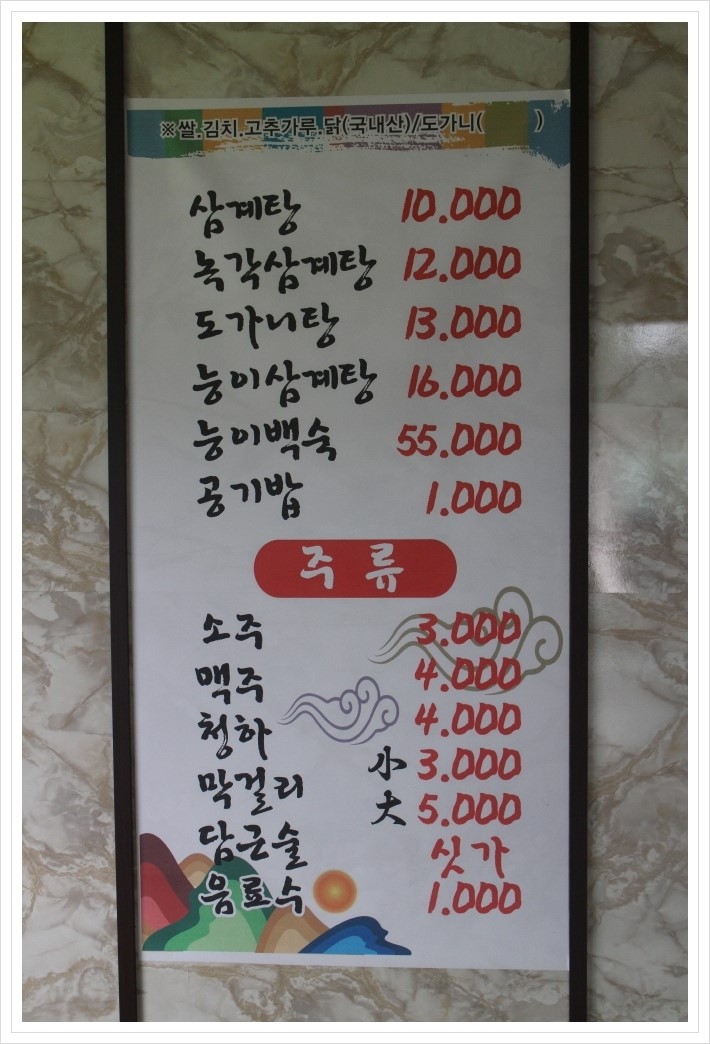 ※쌀.김치.고추가루.닭(국내산)/도가니( )
삼계탕 10.000
녹각삼계탕 12.000
도가니탕 13.000
능이삼계탕 16.000
능이백숙 55.000
공기밥 1.000
주류
소주 3.000
맥주 4.000
청하 4.000
막걸리 小 3.000
大 5.000
담근술 싯가
음료수 1.000